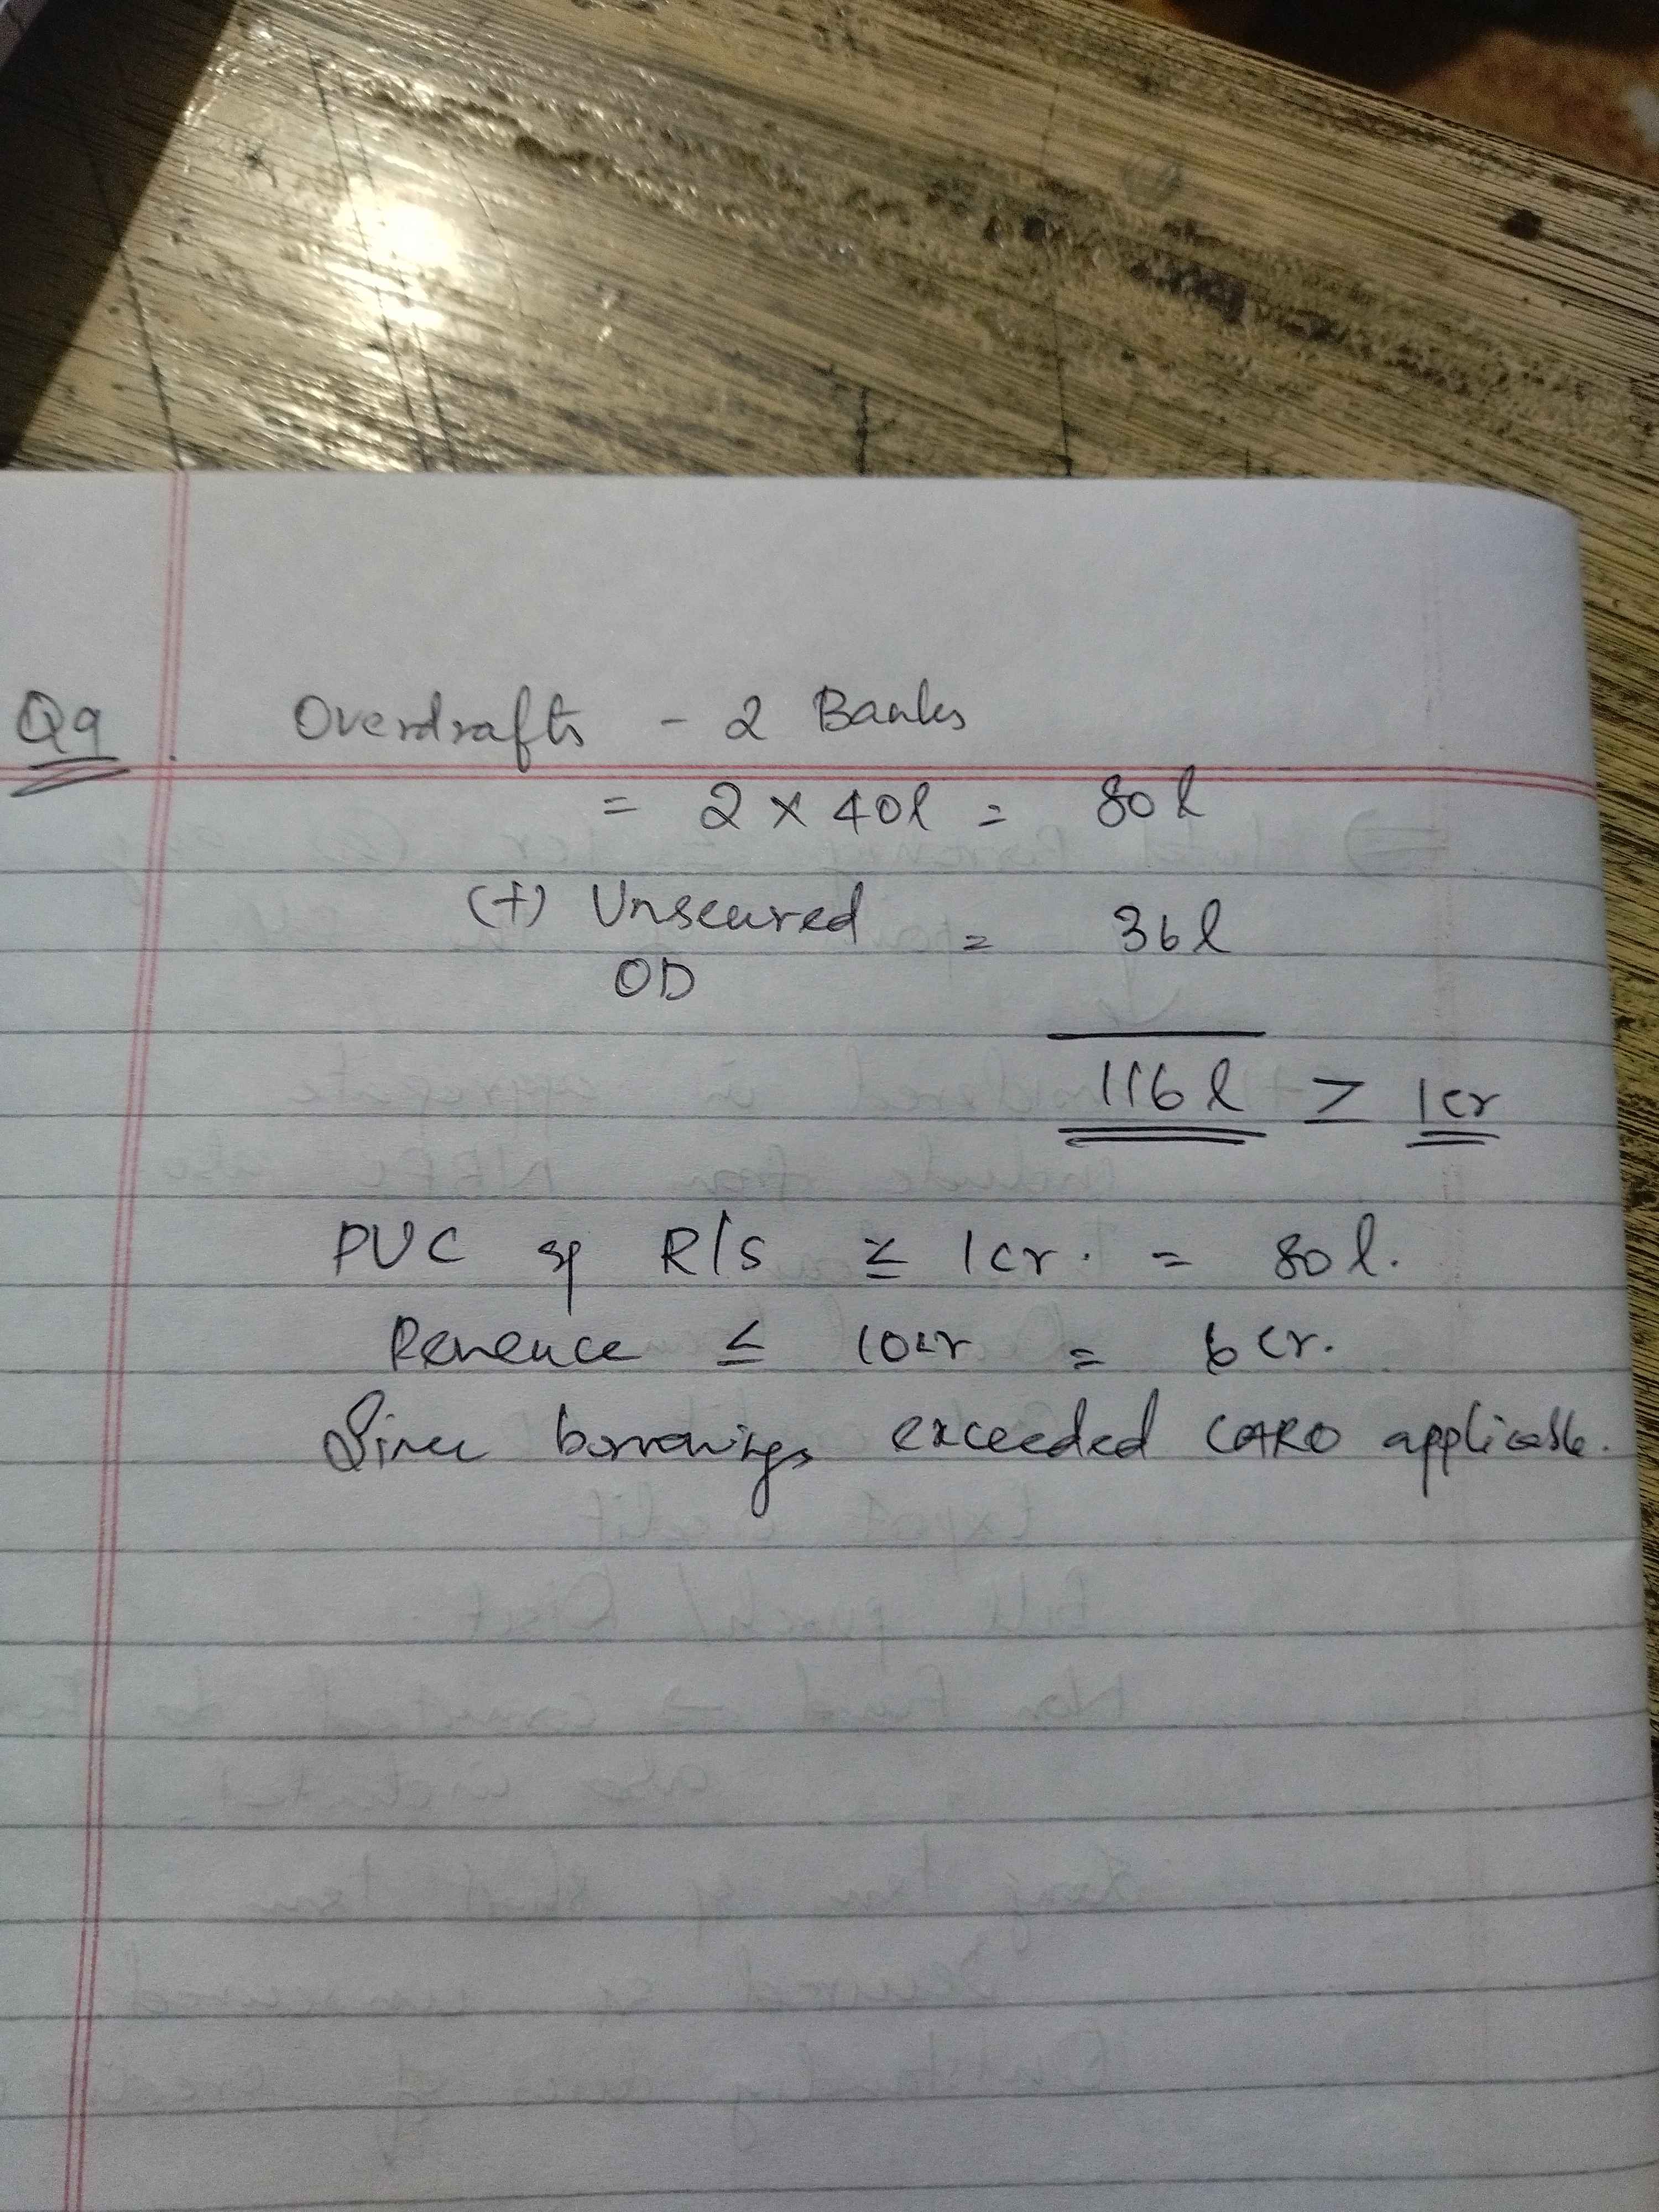 Q9. Overdrafts - 2 Banks
= 2 x 40l = 80l
(+) Unsecured = 36l
OD
116l > 1cr
PUC & R/S ≤ 1cr. = 80l.
Revenue ≤ 10cr = 6cr.
Since borrowings exceeded CARO applicable.